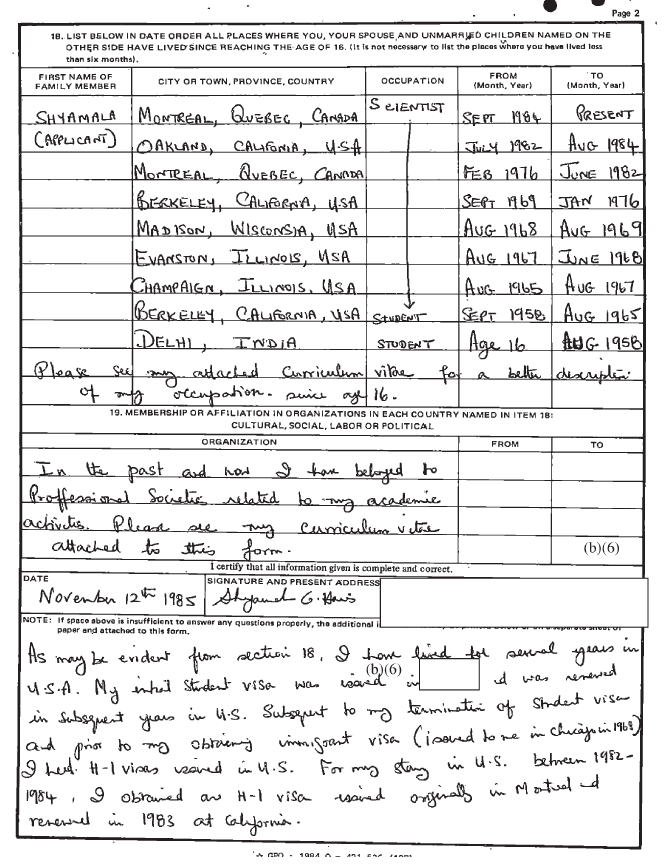 Page 2
18. LIST BELOW IN DATE ORDER ALL PLACES WHERE YOU, YOUR SPOUSE AND UNMARRIED CHILDREN NAMED ON THE
OTHER SIDE HAVE LIVED SINCE REACHING THE AGE OF 16. (It is not necessary to list the places where you have lived less
than six months).
FIRST NAME OF FAMILY MEMBER CITY OR TOWN, PROVINCE, COUNTRY OCCUPATION FROM (Month, Year) TO (Month, Year)
SHYAMALA MONTREAL, QUEBEC, CANADA SCIENTIST SEPT 1984 PRESENT
(APPLICANT) OAKLAND, CALIFONIA, USA JULY 1982 AUG 1984
MONTREAL, QUEBEC, CANADA FEB 1976 JUNE 1982
BERKELEY, CALIFORNIA, USA SEPT 1969 JAN 1976
MADISON, WISCONSIA, USA AUG 1968 AUG 1969
EVANSTON, ILLINOIS, USA AUG 1967 JUNE 1968
CHAMPAIGN, ILLINOIS, USA AUG 1965 AUG 1967
BERKELEY, CALIFORNIA, USA STUDENT SEPT 1958 AUG 1965
DELHI, INDIA STUDENT Age 16 AUG 1958
Please see my attached curriculum vitae for a better description
of my occupation. since age 16.
19. MEMBERSHIP OR AFFILIATION IN ORGANIZATIONS IN EACH COUNTRY NAMED IN ITEM 18:
CULTURAL, SOCIAL, LABOR OR POLITICAL
ORGANIZATION FROM TO
In the past and now I have belonged to
Proffessional Societies related to my academic
activities. Please see my curriculum vitae
attached to this form. (b)(6)
I certify that all information given is complete and correct.
DATE SIGNATURE AND PRESENT ADDRESS
November 12th 1985 Shyamala G. Harris
NOTE: If space above is insufficient to answer any questions properly, the additional
paper and attached to this form.
As may be evident from section 18, I have lived for several years in
U.S.A. My initial Student visa was issued in (b)(6) and was renewed
in subsequent years in U.S. Subsequent to my termination of Student visa
and prior to my obtaining immigrant visa (issued to me in chicago in 1968)
I held H-1 visas issued in U.S. For my stay in U.S. between 1982-
1984, I obtained an H-1 visa issued originally in Montreal and
renewed in 1983 at California.